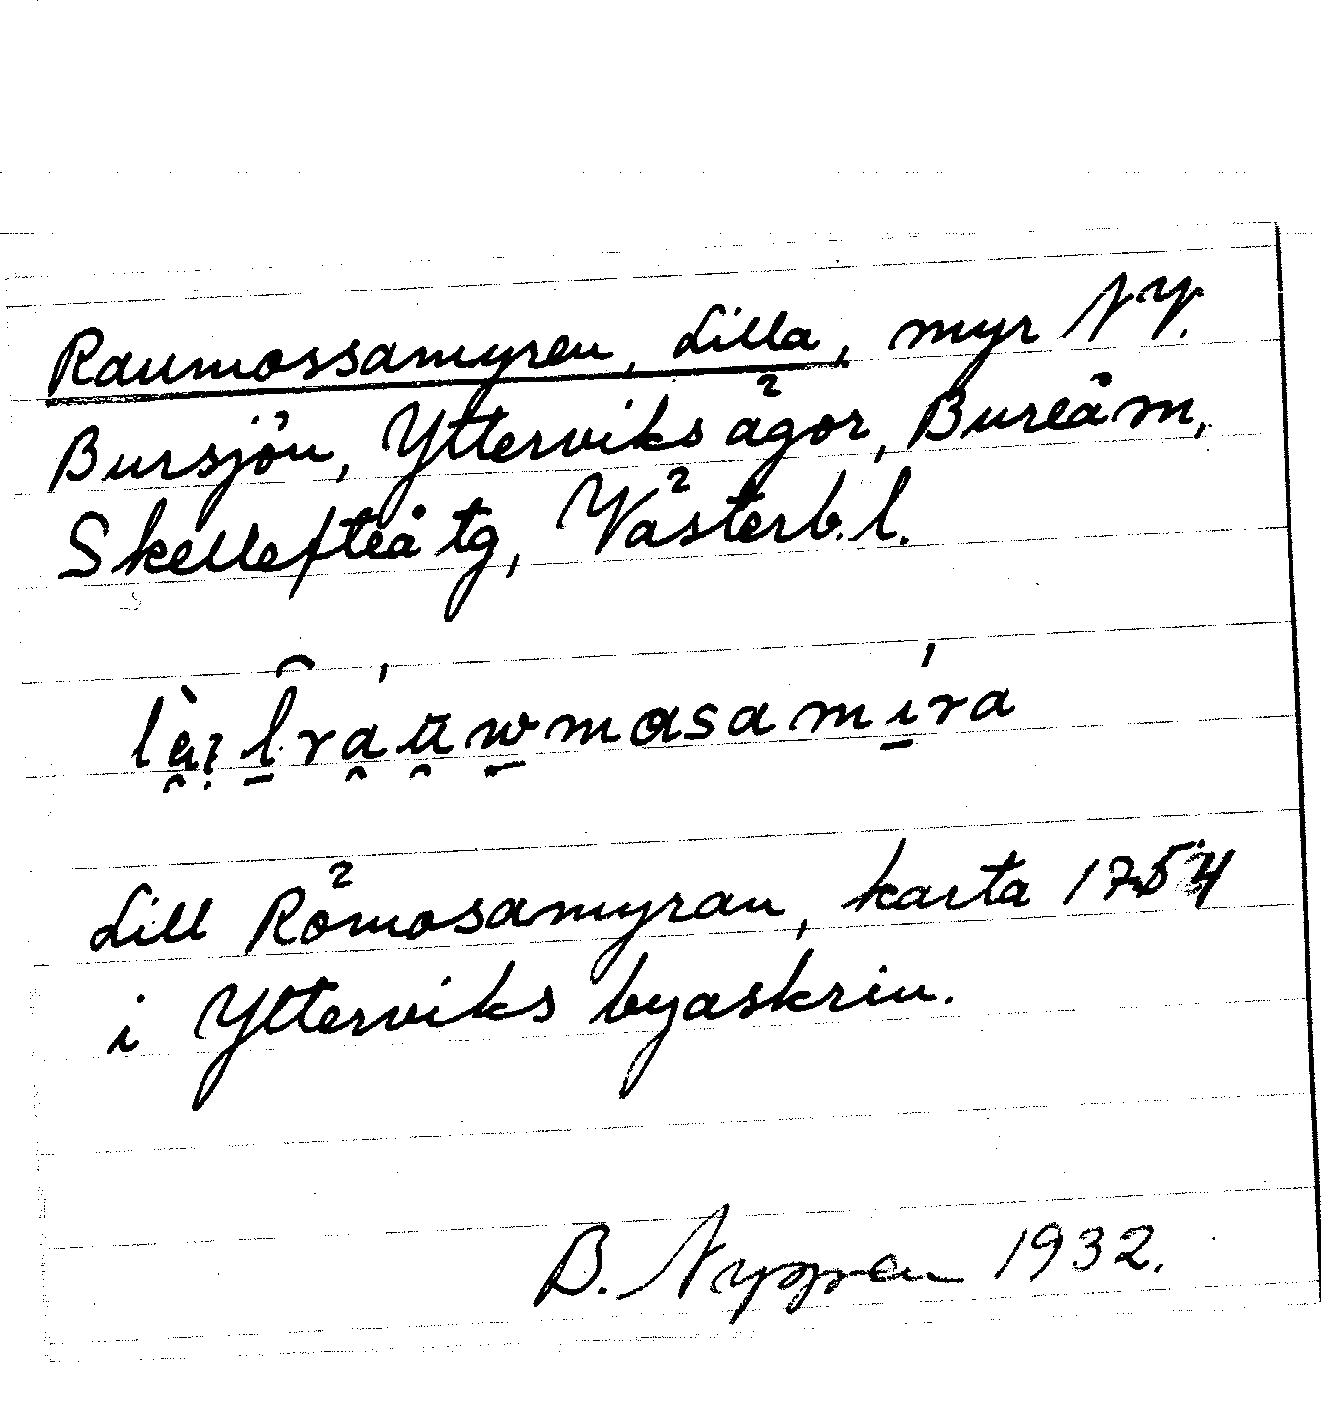 Raumossamyren, Lilla, myr NV.
Bursjön, Ytterviks ägor, Bureå m,
Skellefteå tg, Västerb. l.
Lill Römosamyran, karta 1754
i Ytterviks byaskrin.
B. 1932.